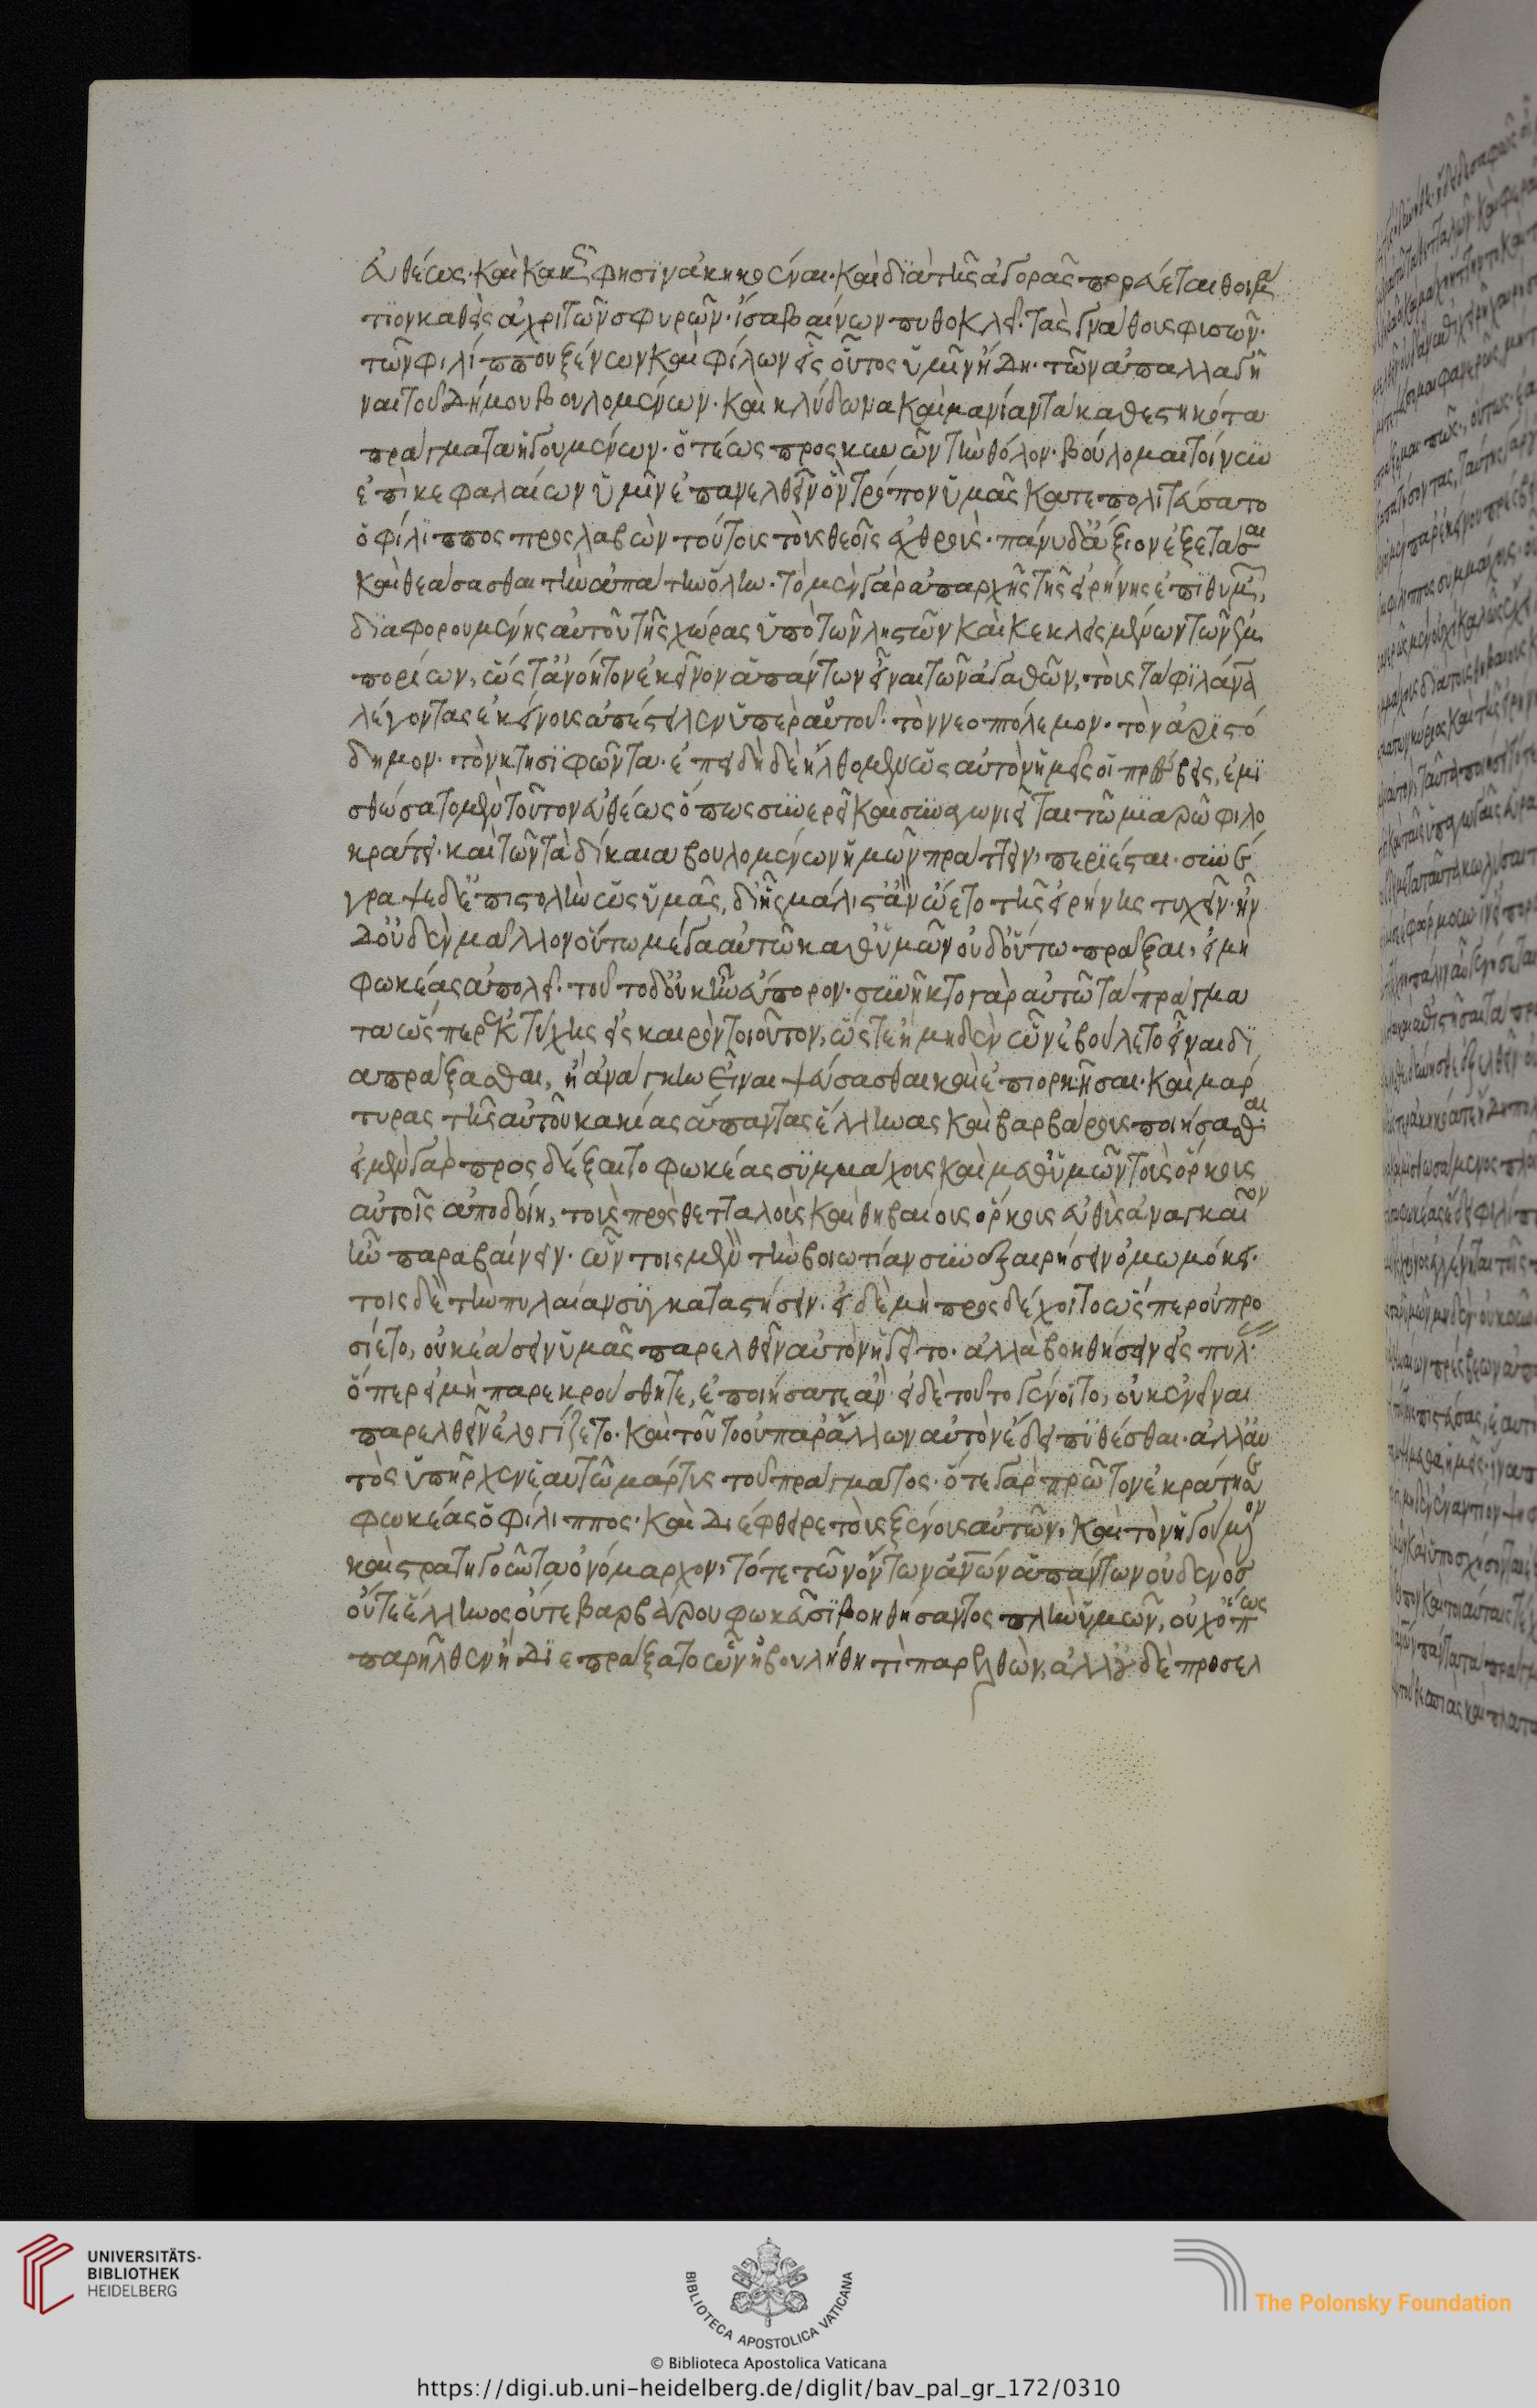 εὐθέως· καὶ κακῶς φησὶν ἀκηκοέναι· καὶ διὰ τῆς ἀγορᾶς πορεύεται θοἰμά
τιον καθεὶς ἄχρι τῶν σφυρῶν· ἴσα βαίνων πυθοκλεῖ· τὰς γνάθους φυσῶν·
τῶν φιλίππου ξένων καὶ φίλων εἷς οὗτος ὑμῖν ἤδη· τῶν ἀπαλλαγῆ
ναι τοῦ δήμου βουλομένων· καὶ κλύδωνα καὶ μανίαν τὰ καθεστηκότα
πράγματα ἡγουμένων· ὁ τέως προσκυνῶν τὴν θόλον· βούλομαι τοίνυν
ἐπὶ κεφαλαίων ὑμῖν ἐπανελθεῖν ὃν τρόπον ὑμᾶς κατεπολιτεύσατο
ὁ φίλιππος προσλαβὼν τούτους τοὺς θεοῖς ἐχθρούς· πάνυ δ' ἄξιον ἐξετάσαι
καὶ θεάσασθαι τὴν ἀπάτην ὅλην· τὸ μὲν γὰρ ἀπαρχῆς τῆς εἰρήνης ἐπιθυμῶν,
διαφορουμένης αὐτοῦ τῆς χώρας ὑπὸ τῶν ληστῶν καὶ κεκλεισμένων τῶν ἐμ
πορίων, ὥστ' ἀνόητον ἐκεῖνον ἁπάντων εἶναι τῶν ἀγαθῶν, τοὺς τὰ φιλάνθρωπα
λέγοντας ἐκείνους ἀπέστειλεν ὑπὲρ αὑτοῦ· τὸν νεοπόλεμον· τὸν ἀριστό
δημον· τὸν κτησιφῶντα· ἐπειδὴ δὲ ἤλθομεν ὡς αὐτὸν ἡμεῖς οἱ πρέσβεις, ἐμι
σθώσατο μὲν τοῦτον εὐθέως ὅπως συνερεῖ καὶ συναγωνιεῖται τῷ μιαρῷ φιλο
κράτει· καὶ τῶν τὰ δίκαια βουλομένων ἡμῶν πράττειν περιέσται· συνέ
γραψε δ' ἐπιστολὴν ὡς ὑμᾶς, δι' ἧς μάλιστ' ἂν ᾤετο τῆς εἰρήνης τυχεῖν· ἦν
δ' οὐδὲν μᾶλλον οὕτω μέγα αὐτῷ καθ' ὑμῶν οὐδ' οὕτω πρᾶξαι, εἰ μὴ
φωκέας ἀπολεῖ· τοῦτο δ' οὐκ ἦν εὔπορον· συνῆκτο γὰρ αὐτῷ τὰ πράγμα
τα ὥσπερ ἐκ τύχης εἰς καιρὸν τοιοῦτον, ὥστε ἢ μηδὲν ὧν ἐβούλετο εἶναι δι
απράξασθαι, ἢ ἀνάγκην εἶναι ψεύσασθαι καὶ ἐπιορκῆσαι· καὶ μάρ
τυρας τῆς αὑτοῦ κακίας ἅπαντας ἕλληνας καὶ βαρβάρους ποιήσασθαι·
εἰ μὲν γὰρ προσδέξαιτο φωκέας συμμάχους καὶ μεθ' ὑμῶν τοὺς ὅρκους
αὐτοῖς ἀποδοίη, τοὺς πρὸς θετταλοὺς καὶ θηβαίους ὅρκους εὐθὺς ἀναγκαῖον
ἦν παραβαίνειν· ὧν τοῖς μὲν τὴν βοιωτίαν συνεξαιρήσειν ὀμωμόκει·
τοῖς δὲ τὴν πυλαίαν συγκαταστήσειν· εἰ δὲ μὴ προσδέχοιτο ὥσπερ οὐ προ
σίετο, οὐκ ἐάσειν ὑμᾶς παρελθεῖν αὐτὸν ἡγεῖτο· ἀλλὰ βοηθήσειν εἰς πύλ·
ὅπερ εἰ μὴ παρεκρούσθητε, ἐποιήσατε ἄν· εἰ δὲ τοῦτο γένοιτο, οὐκ ἐνεῖναι
παρελθεῖν ἐλογίζετο· καὶ τοῦτο οὐ παρ' ἄλλων αὐτὸν ἔδει πυθέσθαι· ἀλλ' αὐ
τὸς ὑπῆρχεν ἑαυτῷ μάρτυς τοῦ πράγματος· ὅτε γὰρ πρῶτον ἐκράτησε
φωκέας ὁ φίλιππος· καὶ διέφθειρε τοὺς ξένους αὐτῶν, καὶ τὸν ἡγούμενον
καὶ στρατηγοῦντα ὀνόμαρχον, τότε τῶν ὄντων ἀνθρώπων ἁπάντων οὐδενὸς
οὔτε ἕλληνος οὔτε βαρβάρου φωκεῦσι βοηθήσαντος πλὴν ὑμῶν, οὐχ ὅπως
παρῆλθεν ἢ διεπράξατο ὧν ἠβουλήθη τὶ παρελθών, ἀλλ' οὐδὲ προσελ
UNIVERSITÄTS-
BIBLIOTHEK
HEIDELBERG
BIBLIOTECA APOSTOLICA VATICANA
The Polonsky Foundation
© Biblioteca Apostolica Vaticana
https://digi.ub.uni-heidelberg.de/diglit/bav_pal_gr_172/0310